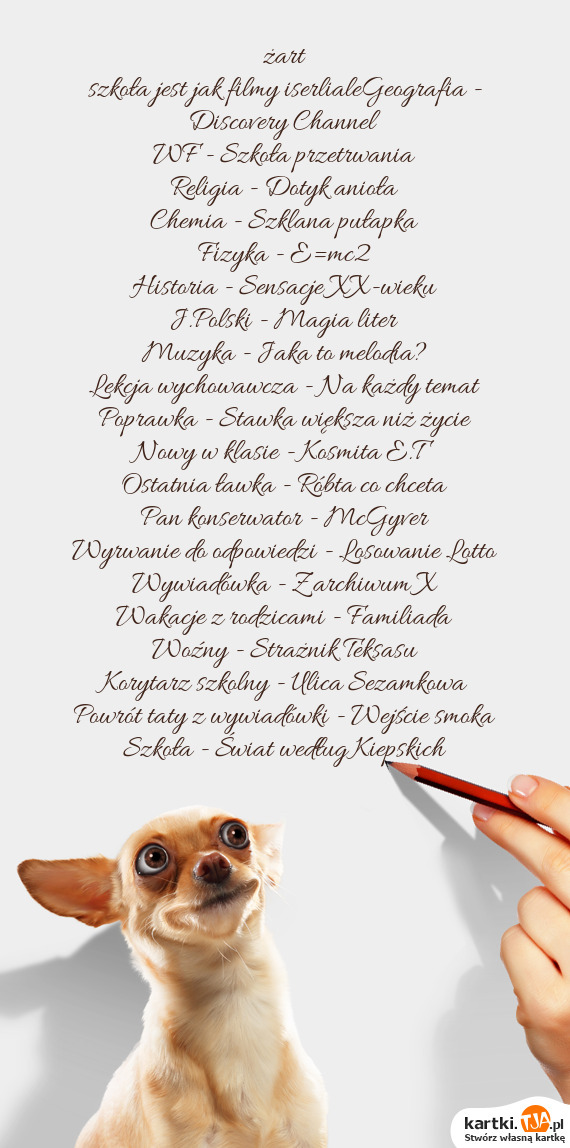 żart
szkoła jest jak filmy iserlialeGeografia -
Discovery Channel
WF - Szkoła przetrwania
Religia - Dotyk anioła
Chemia - Szklana pułapka
Fizyka - E=mc2
Historia - Sensacje XX-wieku
J.Polski - Magia liter
Muzyka - Jaka to melodia?
Lekcja wychowawcza - Na każdy temat
Poprawka - Stawka większa niż życie
Nowy w klasie - Kosmita E.T
Ostatnia ławka - Róbta co chceta
Pan konserwator - McGyver
Wyrwanie do odpowiedzi - Losowanie Lotto
Wywiadówka - Z archiwum X
Wakacje z rodzicami - Familiada
Woźny - Strażnik Teksasu
Korytarz szkolny - Ulica Sezamkowa
Powrót taty z wywiadówki - Wejście smoka
Szkoła - Świat według Kiepskich
kartki.TJA.pl
Stwórz własną kartkę